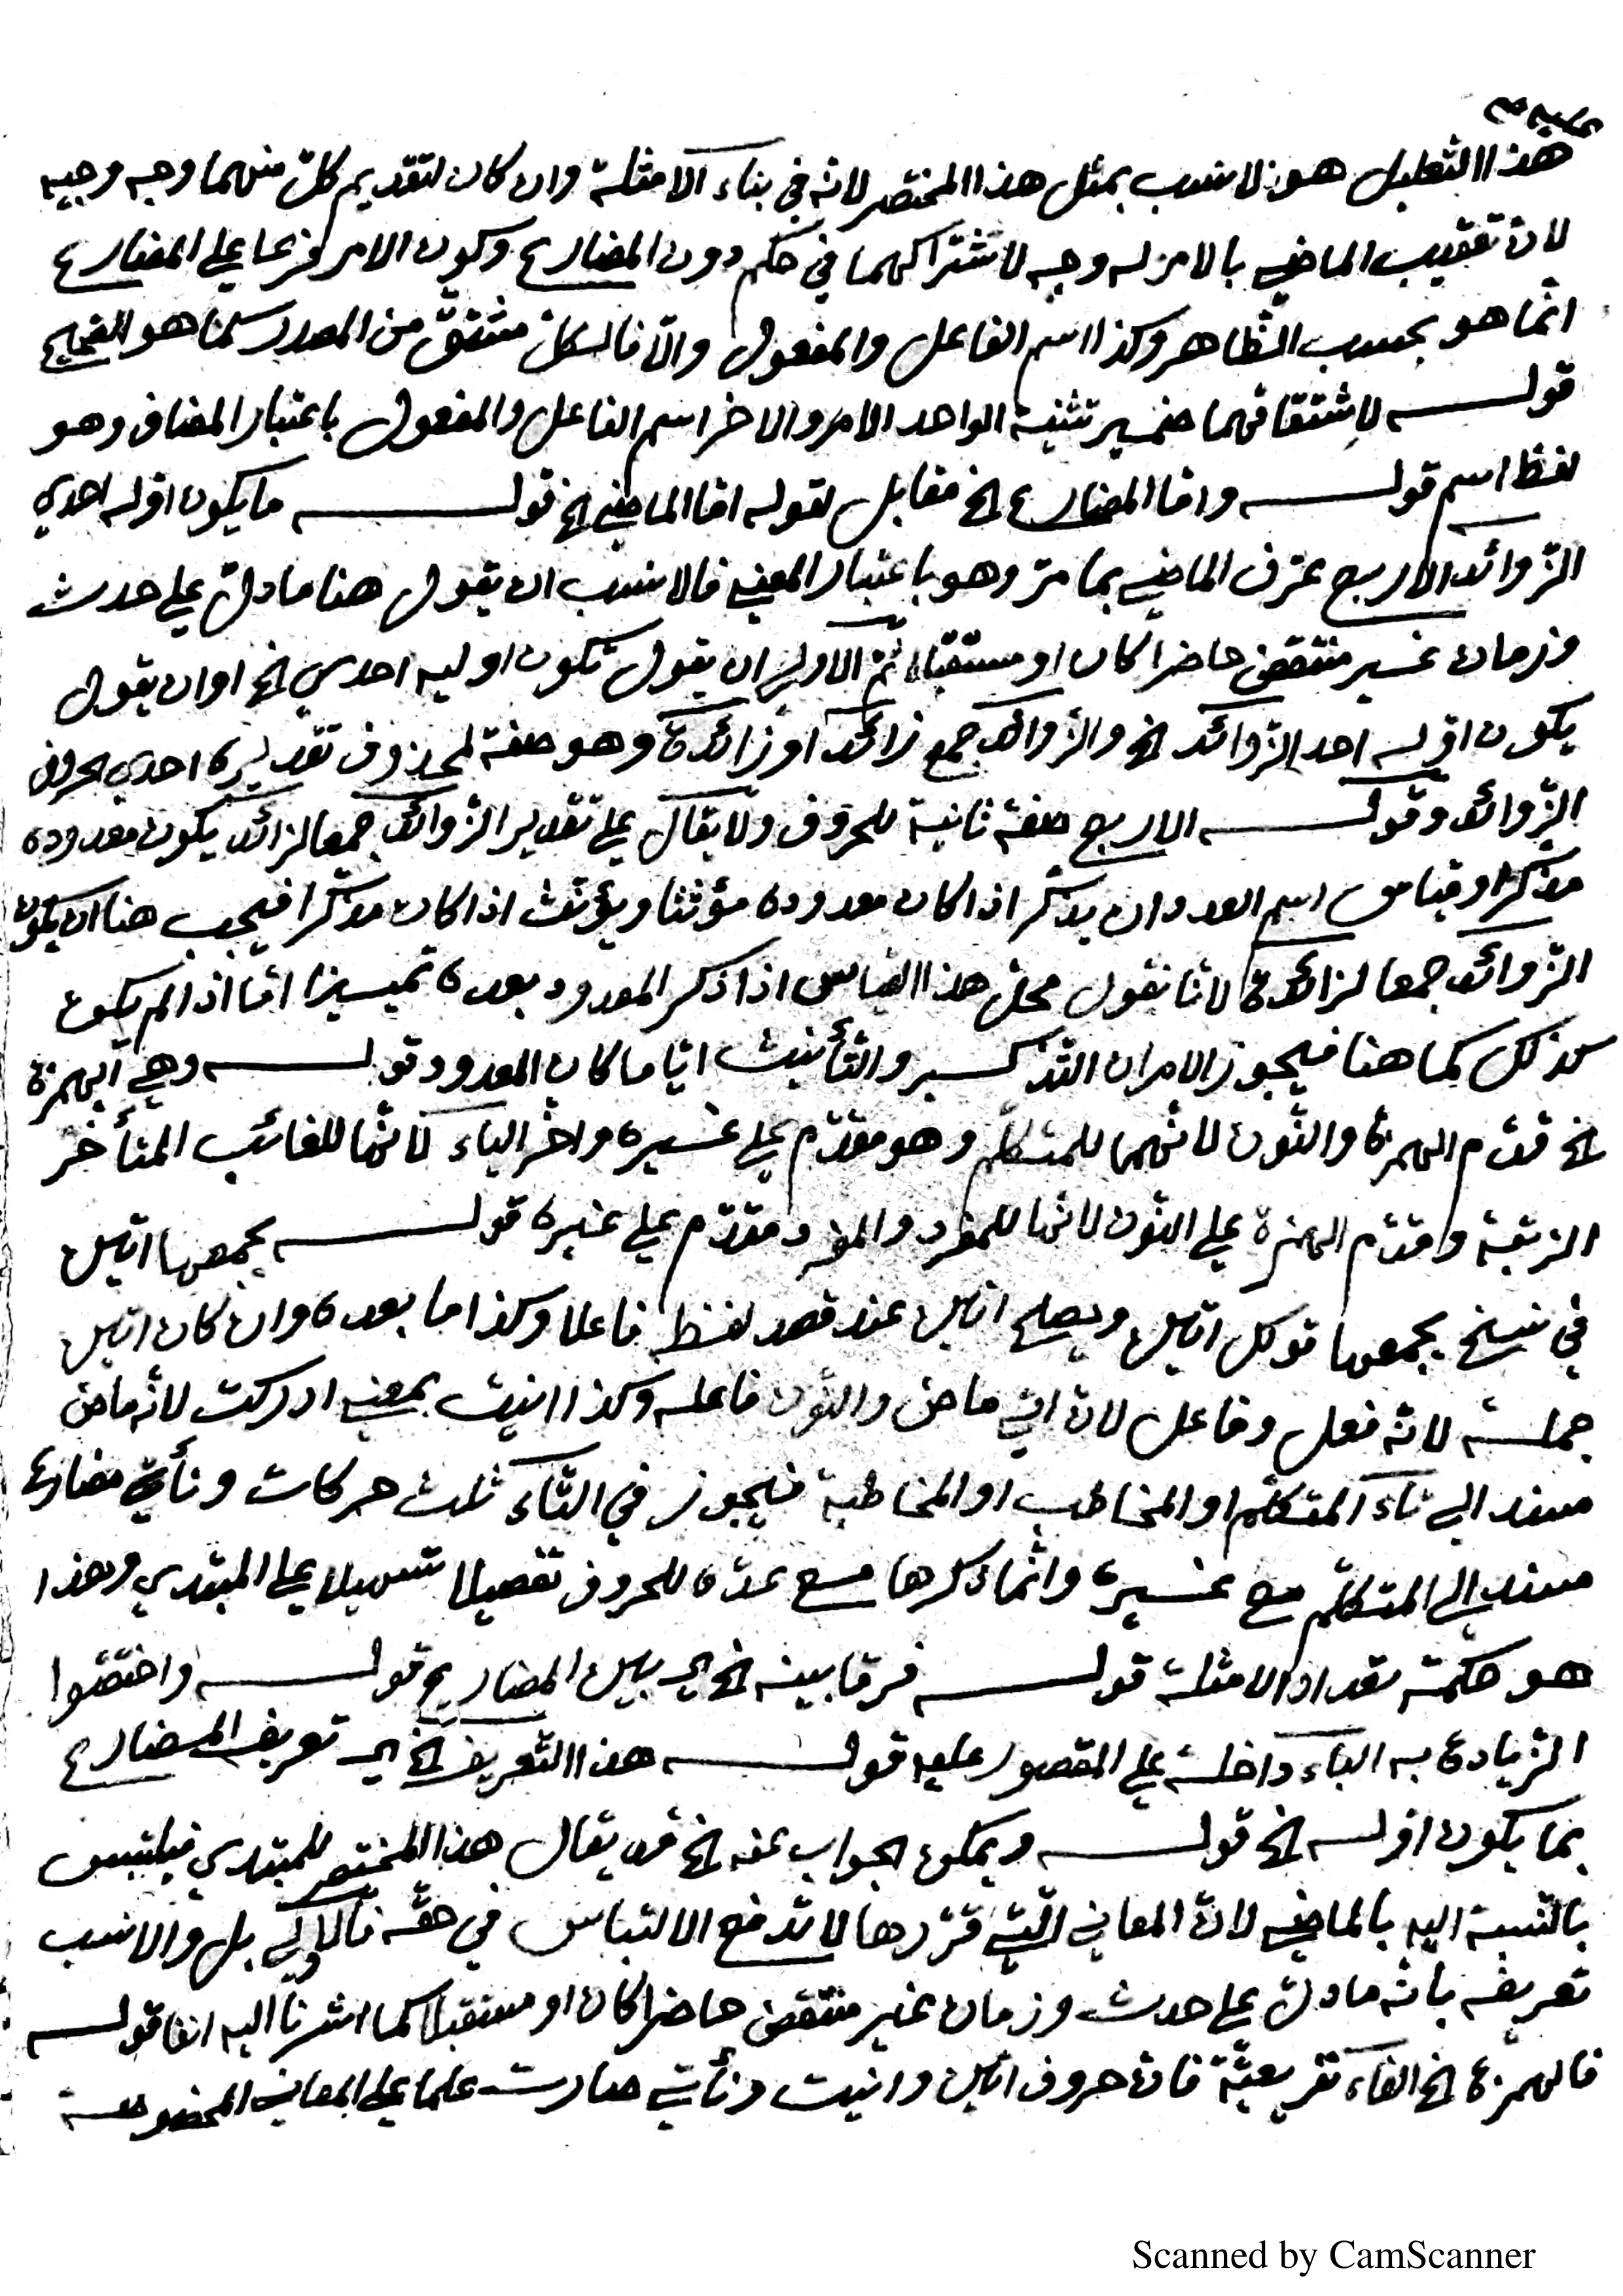 هذا التعليل هو الانسب بمثل هذا المختصر لانه في بناء الامثلة وان كان لتقديم كل منهما وجه وجيه
لان تعقيب الماضي بالامر له وجه لاشتراكهما في حكم دون المضارع وكون الامر فرعا على المضارع
انما هو بحسب الظاهر وكذا اسم الفاعل والمفعول والا فالكل مشتق من المصدر كما هو الصحيح
قوله لاشتقاقهما ضمير تثنية الواحد الامر والاخر اسم الفاعل والمفعول باعتبار المضاف وهو
لفظ اسم قوله واما المضارع الخ مقابل لقوله اما الماضي الخ قوله ما يكون اوله احدي
الزوائد الاربع عرف الماضي بما مر وهو باعتبار المعني فالانسب ان يقول هنا ما دل على حدث
وزمان غير منتقض حاضرا كان او مستقبلا ثم الاولى ان يقول تكون اوليه احدي الخ او ان يقول
يكون اوله احد الزوائد الخ والزوائد جمع زائد او زائدة وهو صفة لمحذوف تقديره احدي حروف
الزوائد وقوله الاربع صفة ثانية للحروف ولا يقال على تقدير الزوائد جمعا لزائد يكون معدوده
مذكرا وقياس اسم العدد ان يذكر اذا كان معدوده مؤنثا ويؤنث اذا كان مذكرا فيجب هنا ان يكون
الزوائد جمعا لزائدة لانا نقول محل هذا القياس اذا ذكر المعدود بعده تمييزا اما اذا لم يكون
كذلك كما هنا فيجوز الامران التذكير والتأنيث ايا ما كان المعدود قوله وهي الهمزة
الخ قدم الهمزة والنون لانهما للمتكلم وهو مقدم على غيره واخر الياء لانها للغائب المتأخر
الرتبة وقدم الهمزة على النون لانها للمفرد والمفرد مقدم على غيره قوله يجمعها اتين
في نسخ يجمعها قولك اتين ويصلح اتين عند قصد لفظه فاعلا وكذا ما بعده وان كان اتين
جملة لانه فعل وفاعل لان اتي ماض والنون فاعله وكذا انيت بمعني ادركت لانه ماض
مسند الي تاء المتكلم او المخاطب او المخاطبة فيجوز في التاء ثلث حركات ونأتي مضارع
مسند الي المتكلم مع غيره وانما ذكرها مع عده للحروف تفصيلا تسهيلا على المبتدي وهذا
هو حكمة تعداد الامثلة قوله فرقا بينه الخ اي بين المضارع قوله واختصوا
الزيادة به الباء داخلة على المقصور عليه قوله هذا التعريف الخ اي تعريف المضارع
بما يكون اوله الخ قوله ويمكن الجواب عنه الخ قد يقال هذا المختصر للمبتدي فيلتبس
بالنسبة اليه بالماضي لان المعاني التي قررها لا تدفع الالتباس في حقه فالاولي بل والانسب
تعريفه بانه ما دل على حدث وزمان غير منتقض حاضرا كان او مستقبلا كما اشرنا اليه انفا قوله
فالهمزة الخ الفاء تفريعية فان حروف اتين وانيت ونأتي صارت علما على المعاني المخصوصة
Scanned by CamScanner